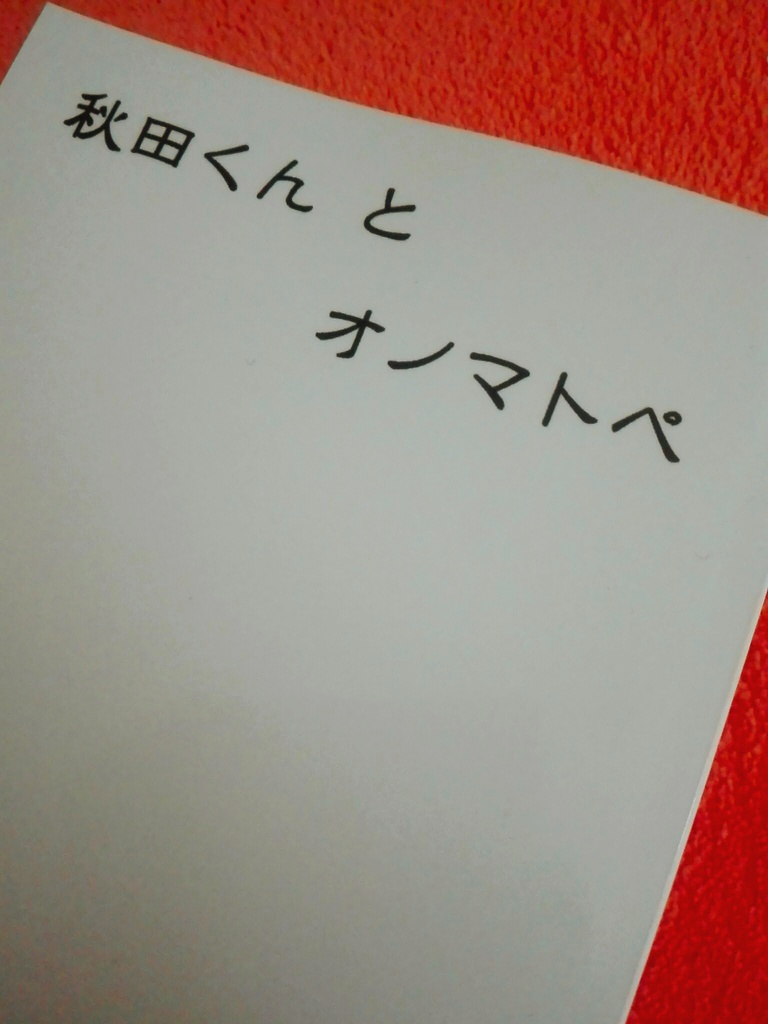 秋田くん と
オノマトペ